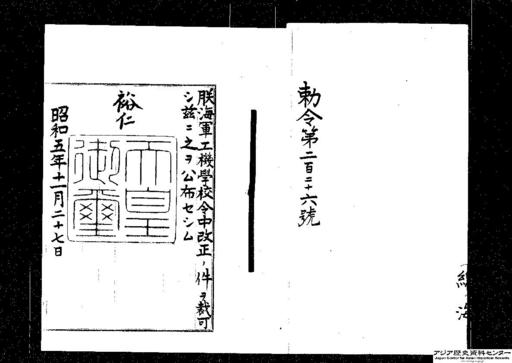 勅令第二百二十六號
朕海軍工機學校令中改正ノ件ヲ裁可
シ茲ニ之ヲ公布セシム
裕仁
天皇
御璽
昭和五年十一月二十七日
アジア歴史資料センター
Japan Center for Asian Historical Records